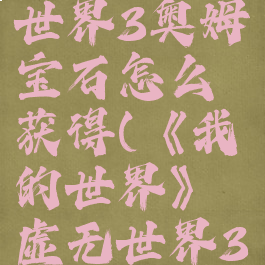 世界3奥姆
宝石怎么
获得(《我
的世界》
虚无世界3